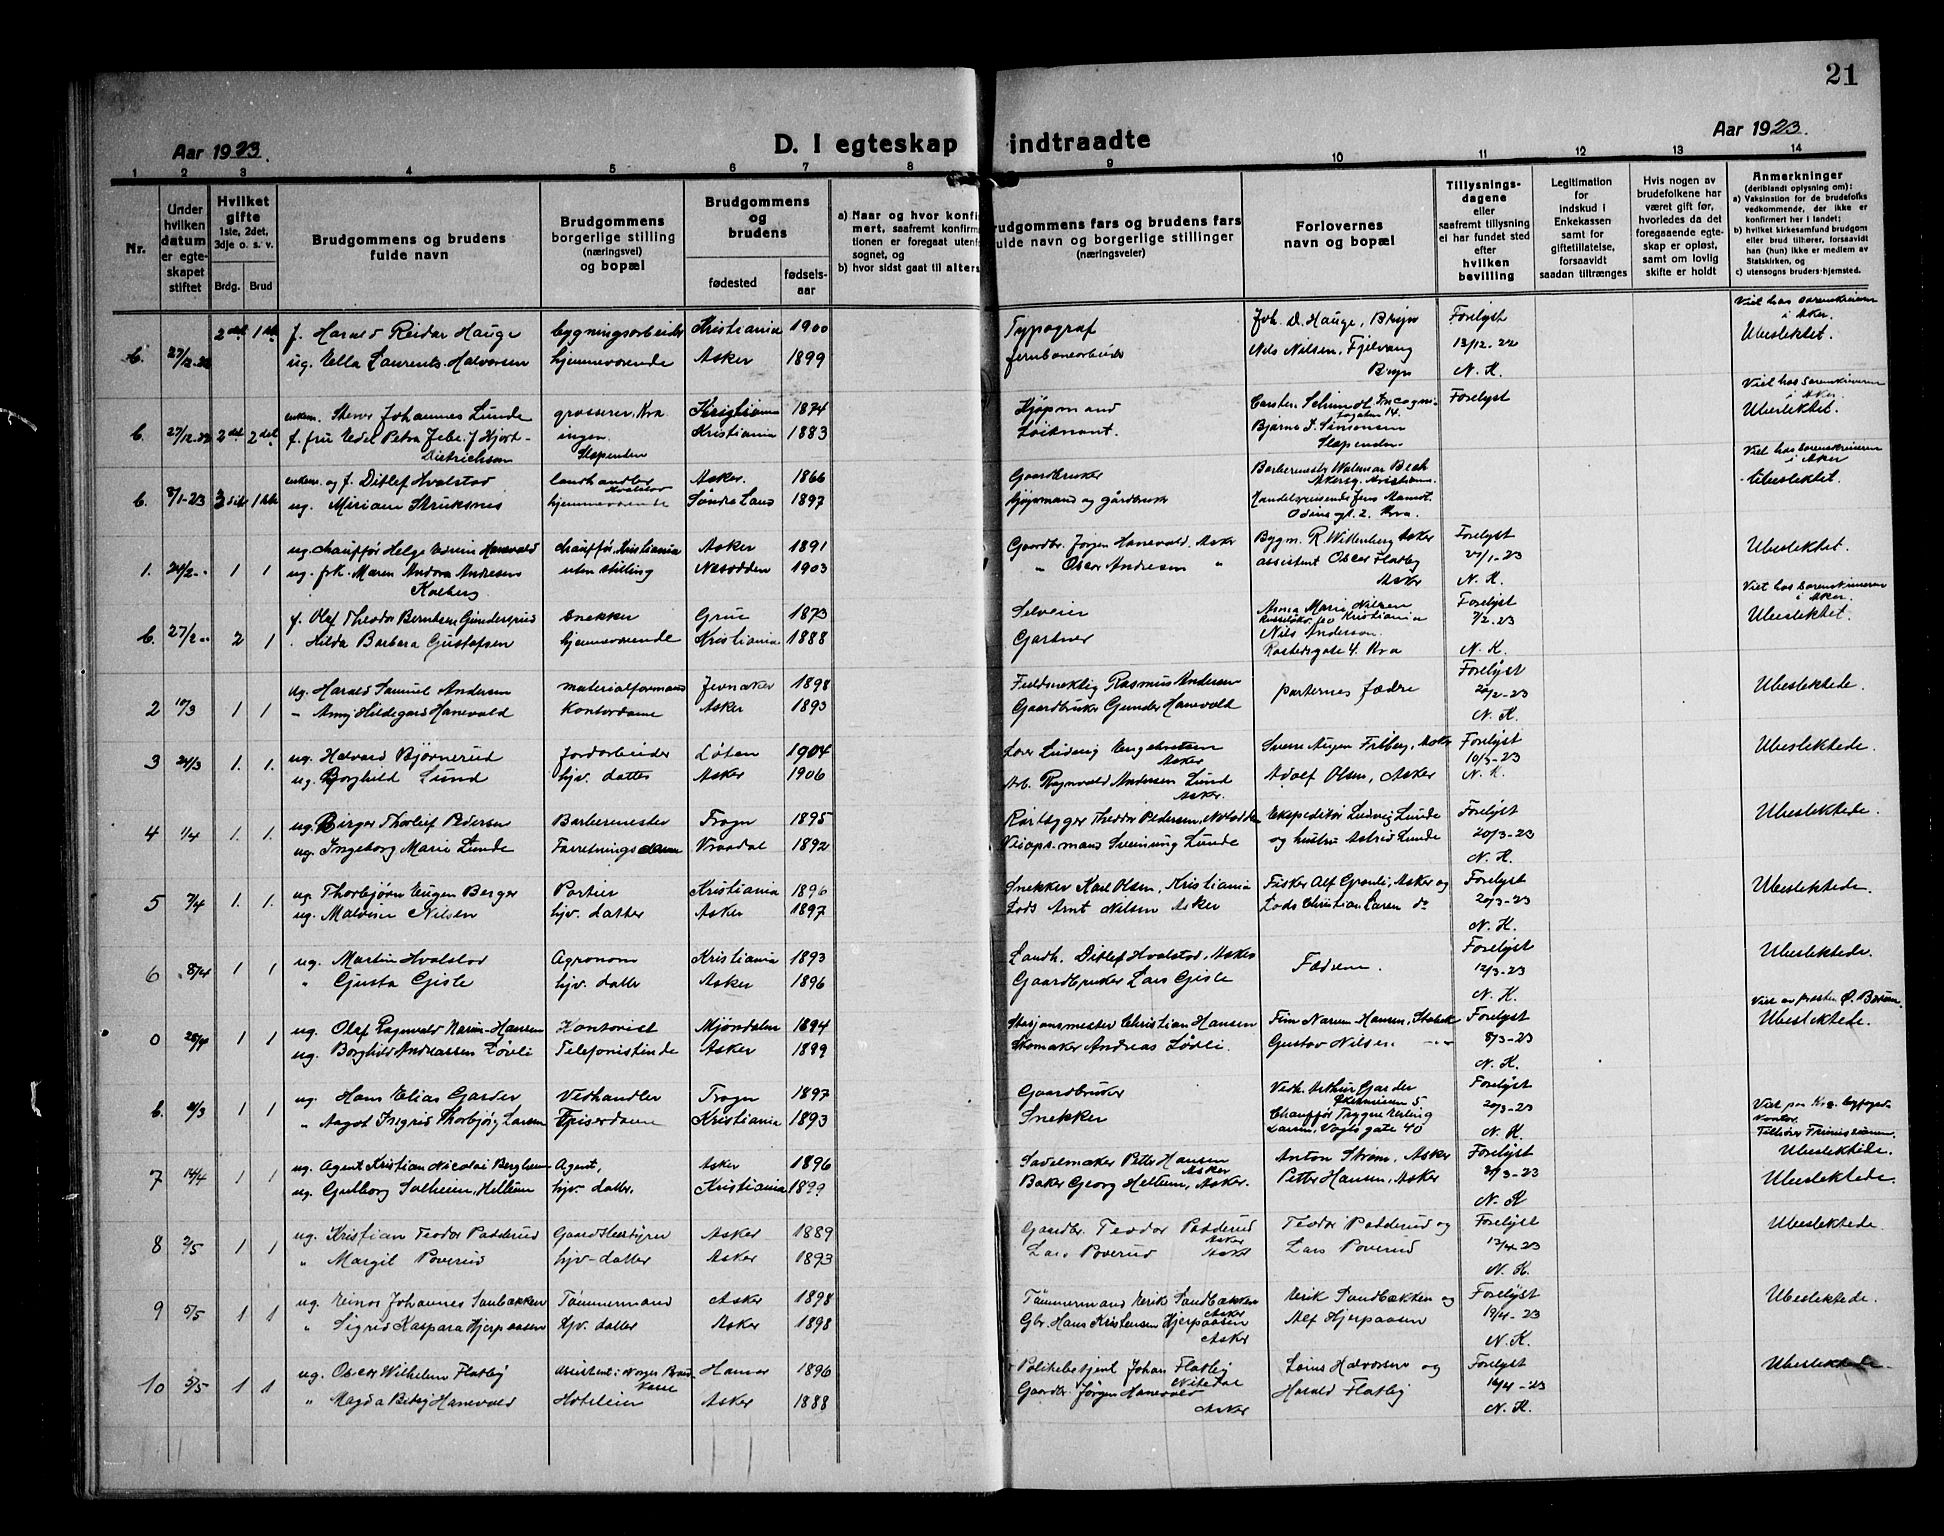 21
Aar 1923.
D. I egteskap indtraadte
Aar 1923.
1 2 3 4 5 6 7 8 9 10 11 12 13 14
Nr.
Under hvilken datum er egteskapet stiftet
Hvilket gifte 1ste, 2det, 3dje o. s. v.
Brdg. Brud
Brudgommens og brudens fulde navn
Brudgommens borgerlige stilling (næringsvei) og bopæl
Brudgommens og brudens
fødested fødselsaar
a) Naar og hvor konfirmert, saafremt konfirmationen er foregaat utenfor sognet, og
b) hvor sidst gaat til alters
Brudgommens fars og brudens fars fulde navn og borgerlige stillinger (næringsveier)
Forlovernes navn og bopæl
Tillysningsdagene eller saafremt tillysning ei har fundet sted efter hvilken bevilling
Legitimation for indskud i Enkekassen samt for giftetillatelse, forsaavidt saadan tiltrænges
Hvis nogen av brudefolkene har været gift før, hvorledes da det foregaaende egteskap er opløst, samt om lovlig skifte er holdt
Anmerkninger (deriblandt oplysning om):
a) Vaksination for de brudefolks vedkommende, der ikke er konfirmert her i landet;
b) hvilket kirkesamfund brudgom eller brud tilhører, forsaavidt han (hun) ikke er medlem av Statskirken, og
c) utensogns bruders hjemsted.
Viet hos sorenskriveren i Aker.
2det 1ste f. Harald Reidar Hauge bygningsarbeider Kristiania 1900 Typograf Joh. D. Hauge, Bryn Forelyst Ubeslektet.
b. 27/12-22 ug. Ella Laurents Halvorsen hjemmeværende Asker 1899 jernbanearbeider Nils Nilsen, Fjelvang Bryn 13/12.22 N. K.
Viet hos sorenskriveren i Aker.
enkem. Johannes Lunde grosserer, Kra Kristiania 1874 Kjøpmand Carsten Schmidt Incognitogaten 14. Forelyst Ubeslektet.
b. 27/12.22 2det 2det f. fru Edel Petra f. Hjort-Dietrichson ingen Slependen Kristiania 1883 Løitnant Bjarne Simonsen Slependen
Viet hos sorenskriveren i Aker
enkem. og f. Ditlef Hvalstad landhandler Hvalstad Asker. 1866 Gaardbruker Ubeslektet.
b. 8/1-23 3die 1ste ug. Miriam Struksnes hjemmeværende Søndre Land 1897 kjøpmand og gårdbruker Odins gt. 2. Kra.
ug. chauffør Helge Edvin Hanevold chauffør, Kristiania Asker 1891 Gaardbr. Jørgen Hanevold, Asker Bygm. R. Wittenberg Asker Forelyst Ubeslektet.
1. 24/2 1 1 ug. frk. Maren Andora Andresen Kalberg uten stilling Nesodden 1903 " Oscar Andresen " assistent Oscar Flatby Asker 27/1-23 N. K.
Viet hos sorenskriveren i Aker.
f. Olaf Theodor Berntsen Gunderspud Snekker Grue 1873 Selveier Anna Marie Nilsen Kristiania Forelyst Ubeslektet.
b. 27/2 2 1 Hilda Barbara Gustafsen hjemmeværende Kristiania 1888 Gartner Nils Andersen. Rostedsgate 4. Kra 7/2.23 N. K.
ug. Harald Samuel Andersen materialformand Jevnaker 1898 Rasmus Andersen parternes fædre Forelyst Ubeslektede.
2 10/3 1 1 " Amy Hildegard Hanevold Kontordame Asker 1893 Gaardbruker Gunder Hanevold 20/2-23 N. K.
ug. Halvard Bjørnerud Jordarbeider Løten 1904 Ludvig Engebretsen Asker Sverre Filberg, Asker Forelyst Ubeslektede.
3 24/3 1. 1. ug. Borghild Lund hjv. datter Asker 1906 Arb. Ragnvald Andersen Lund Asker. Adolf Olsen, Asker 10/3-23 N. K.
ug. Birger Thorleif Pedersen Barbermester Frogn 1895 Theodor Pedersen, Nesodden Ekspeditør Ludvig Lunde Forelyst Ubeslektede.
4 1/4 1. 1. ug. Ingeborg Marie Lunde Forretningsdame Vraadal 1892 Sveinung Lunde og hustru Astrid Lunde 20/3-23 N. K.
ug. Thorbjørn Eugen Berger Portier Kristiania 1896 Snekker Karl Olsen, Kristiania Fisker Alf Granli, Asker og Forelyst Ubeslektede.
5 7/4 1. 1. ug. Malvine Nilsen hjv. datter Asker 1897 Lods Arnt Nilsen Asker Lods Christian Larsen do 20/3-23 N. K.
ug. Martin Hvalstad Agronom Kristiania 1893 Landh. Ditlef Hvalstad, Asker Fædrene. Forelyst Ubeslektede.
6 8/4 1 1 " Gusta Gisle hjv. datter Asker 1896 Gaardbruker Lars Gisle 12/3-23 N. K.
Viet av presten Ø. Bærum.
ug. Olaf Ragnvald Narum-Hansen Kontorist Mjøndalen 1894 Stasjonsmester Christian Hansen Finn Narum Hansen, Stabek Forelyst Ubeslektede.
0 28/4 1 1 ug. Borghild Andreassen Løvli Telefonistinde Asker 1899 Skomaker Andreas Løvli. Gustav Nilsen 8/3-23 N. K.
ug. Hans Elias Garder Vedhandler Frogn 1897 Gaardbruker Vedh. Arthur Garder Forelyst Viet paa Kra. byfogeds kontor.
b. 2/3 1 1 " Aagot Ingrid Thorbjørg Larsen Kristiania 1893 Snekker Chauffør Trygve Larsen, Vogts gate 40 20/3-23 N. K. Tilhører Ubeslektede.
ug. Agent Kristian Nicolai Berghem Agent, Asker 1896 Sadelmaker Petter Hansen Asker Anton Strøm, Asker Forelyst Ubeslektede.
7 14/4 1 1 ug. Gudborg Solheim Hellum hjv. datter, Kristiania 1899 Baker Georg Hellum, Asker. Petter Hansen, Asker 21/3-23 N. K.
ug. Kristian Teodor Padderud Gaardbestyrer Asker 1889 Gaardbr. Teodor Padderud Asker Teodor Padderud og Forelyst Ubeslektede.
8 2/5 1 1 " Margit Poverud hjv-datter Asker 1893 Lars Poverud Asker Lars Poverud 13/4-23 N. K.
ug. Einar Johannes Sandbækken Tømmermand Asker 1898 Tømmermand Erik Sandbækken Asker Erik Sandbækken og Forelyst Ubeslektede.
9 5/5 1 1 " Sigrid Kaspara Hjerpaasen Hjv. datter Asker 1898 Gbr. Hans Kristensen Hjerpaasen Asker Alf Hjerpaasen 19/4-23 N. K.
ug. Oscar Wilhelm Flatby assistent i Norges Brandkasse Hamar 1896 Politibetjent Johan Flatby Nitedal Halvorsen og Forelyst Ubeslektede.
10 5/5 1 1 " Magda Betsy Hanevold Hoteleier Asker 1888 Gaardbr Jørgen Hanevold Asker Harald Flatby 16/4-23 N. K.